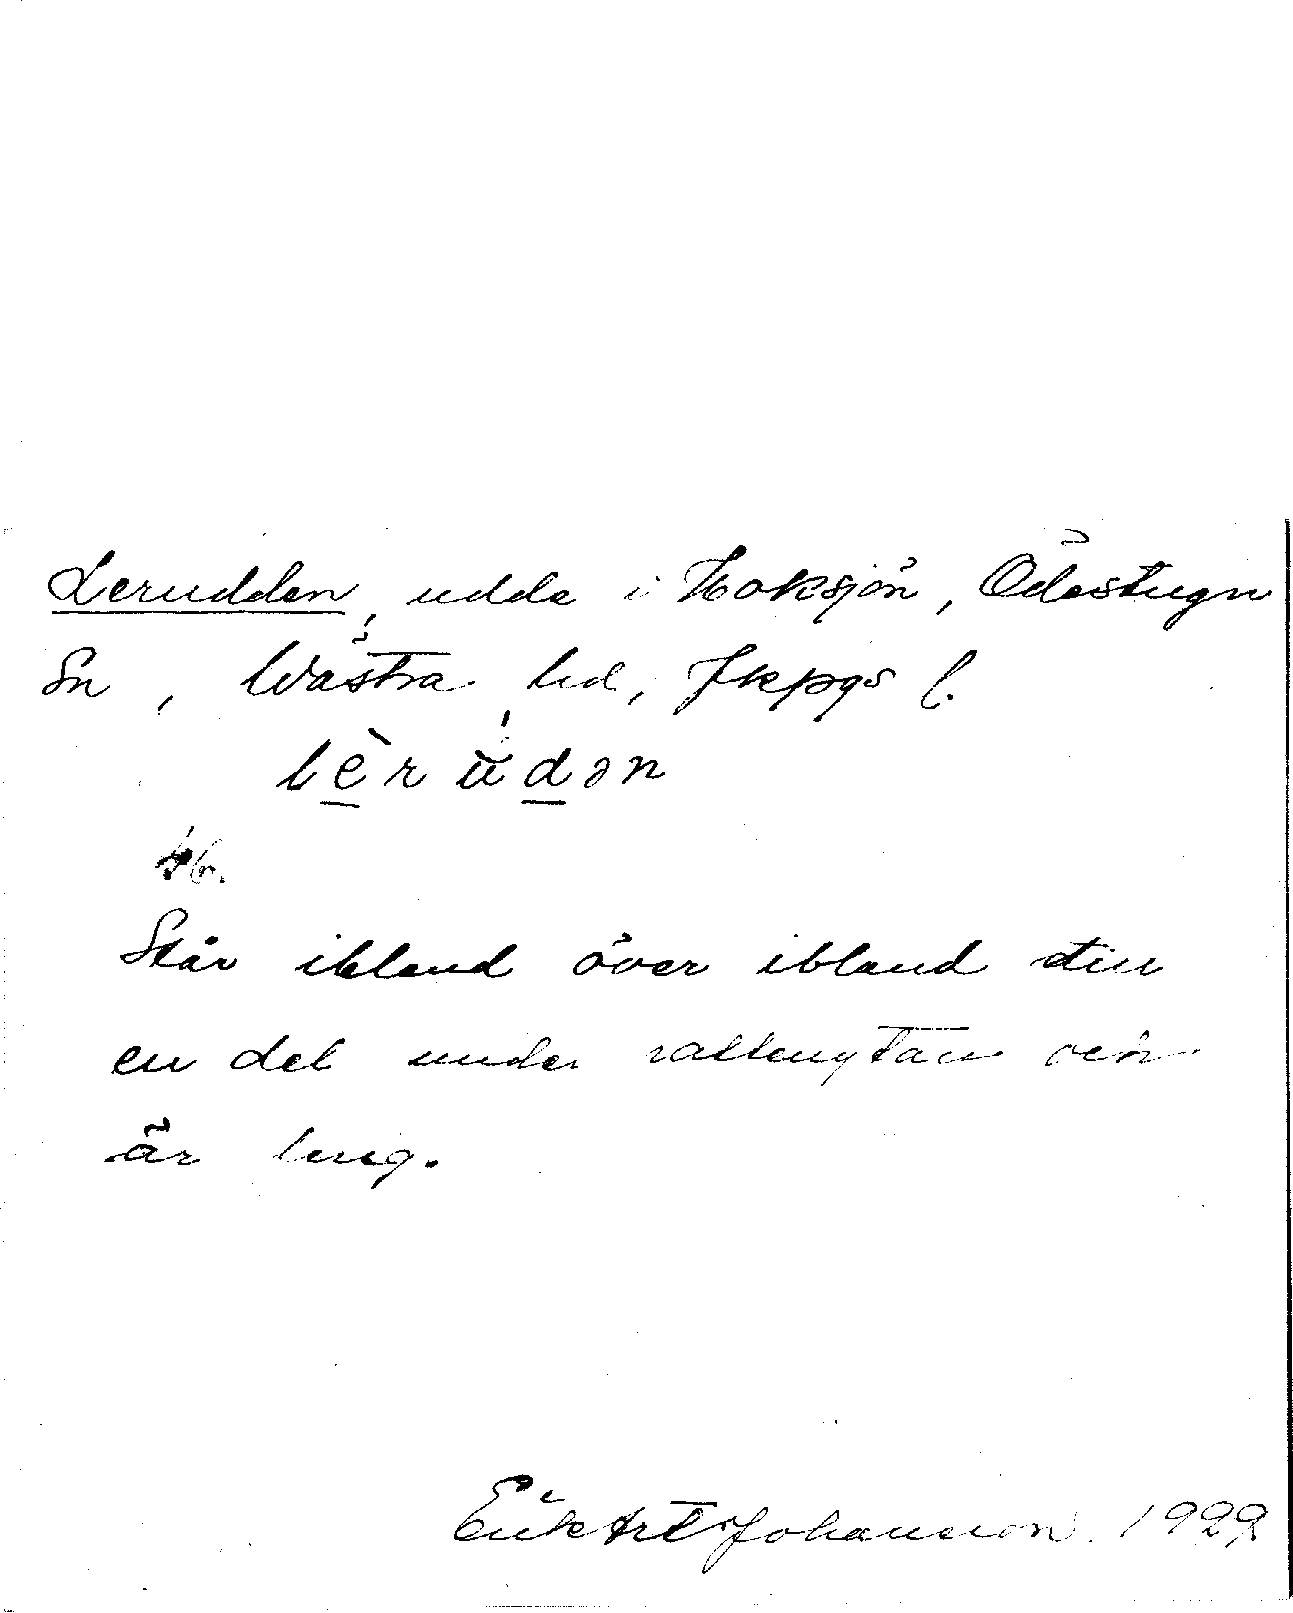 Lerudden, udde i Hoksjön, Ödestugu
Sn, Västra hd, Jkpgs l.
lèrùdən
Står ibland över ibland till
en del under vattenytan och
är lång.
Erik Johansson 1922